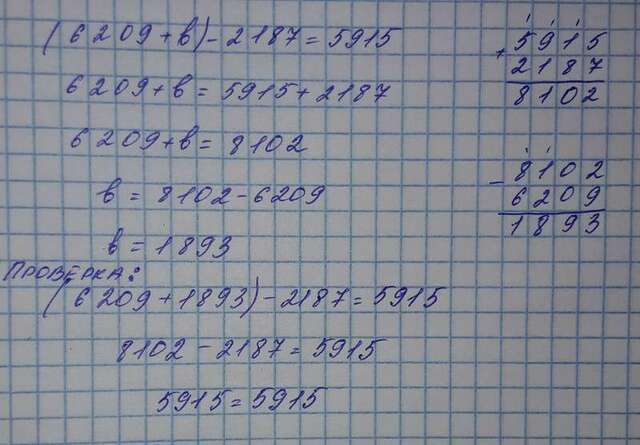 (6209+в)-2187=5915
6209+в=5915+2187
6209+в=8102
в=8102-6209
в=1893
ПРОВЕРКА:
(6209+1893)-2187=5915
8102-2187=5915
5915=5915
+5915
2187
8102
-8102
6209
1893